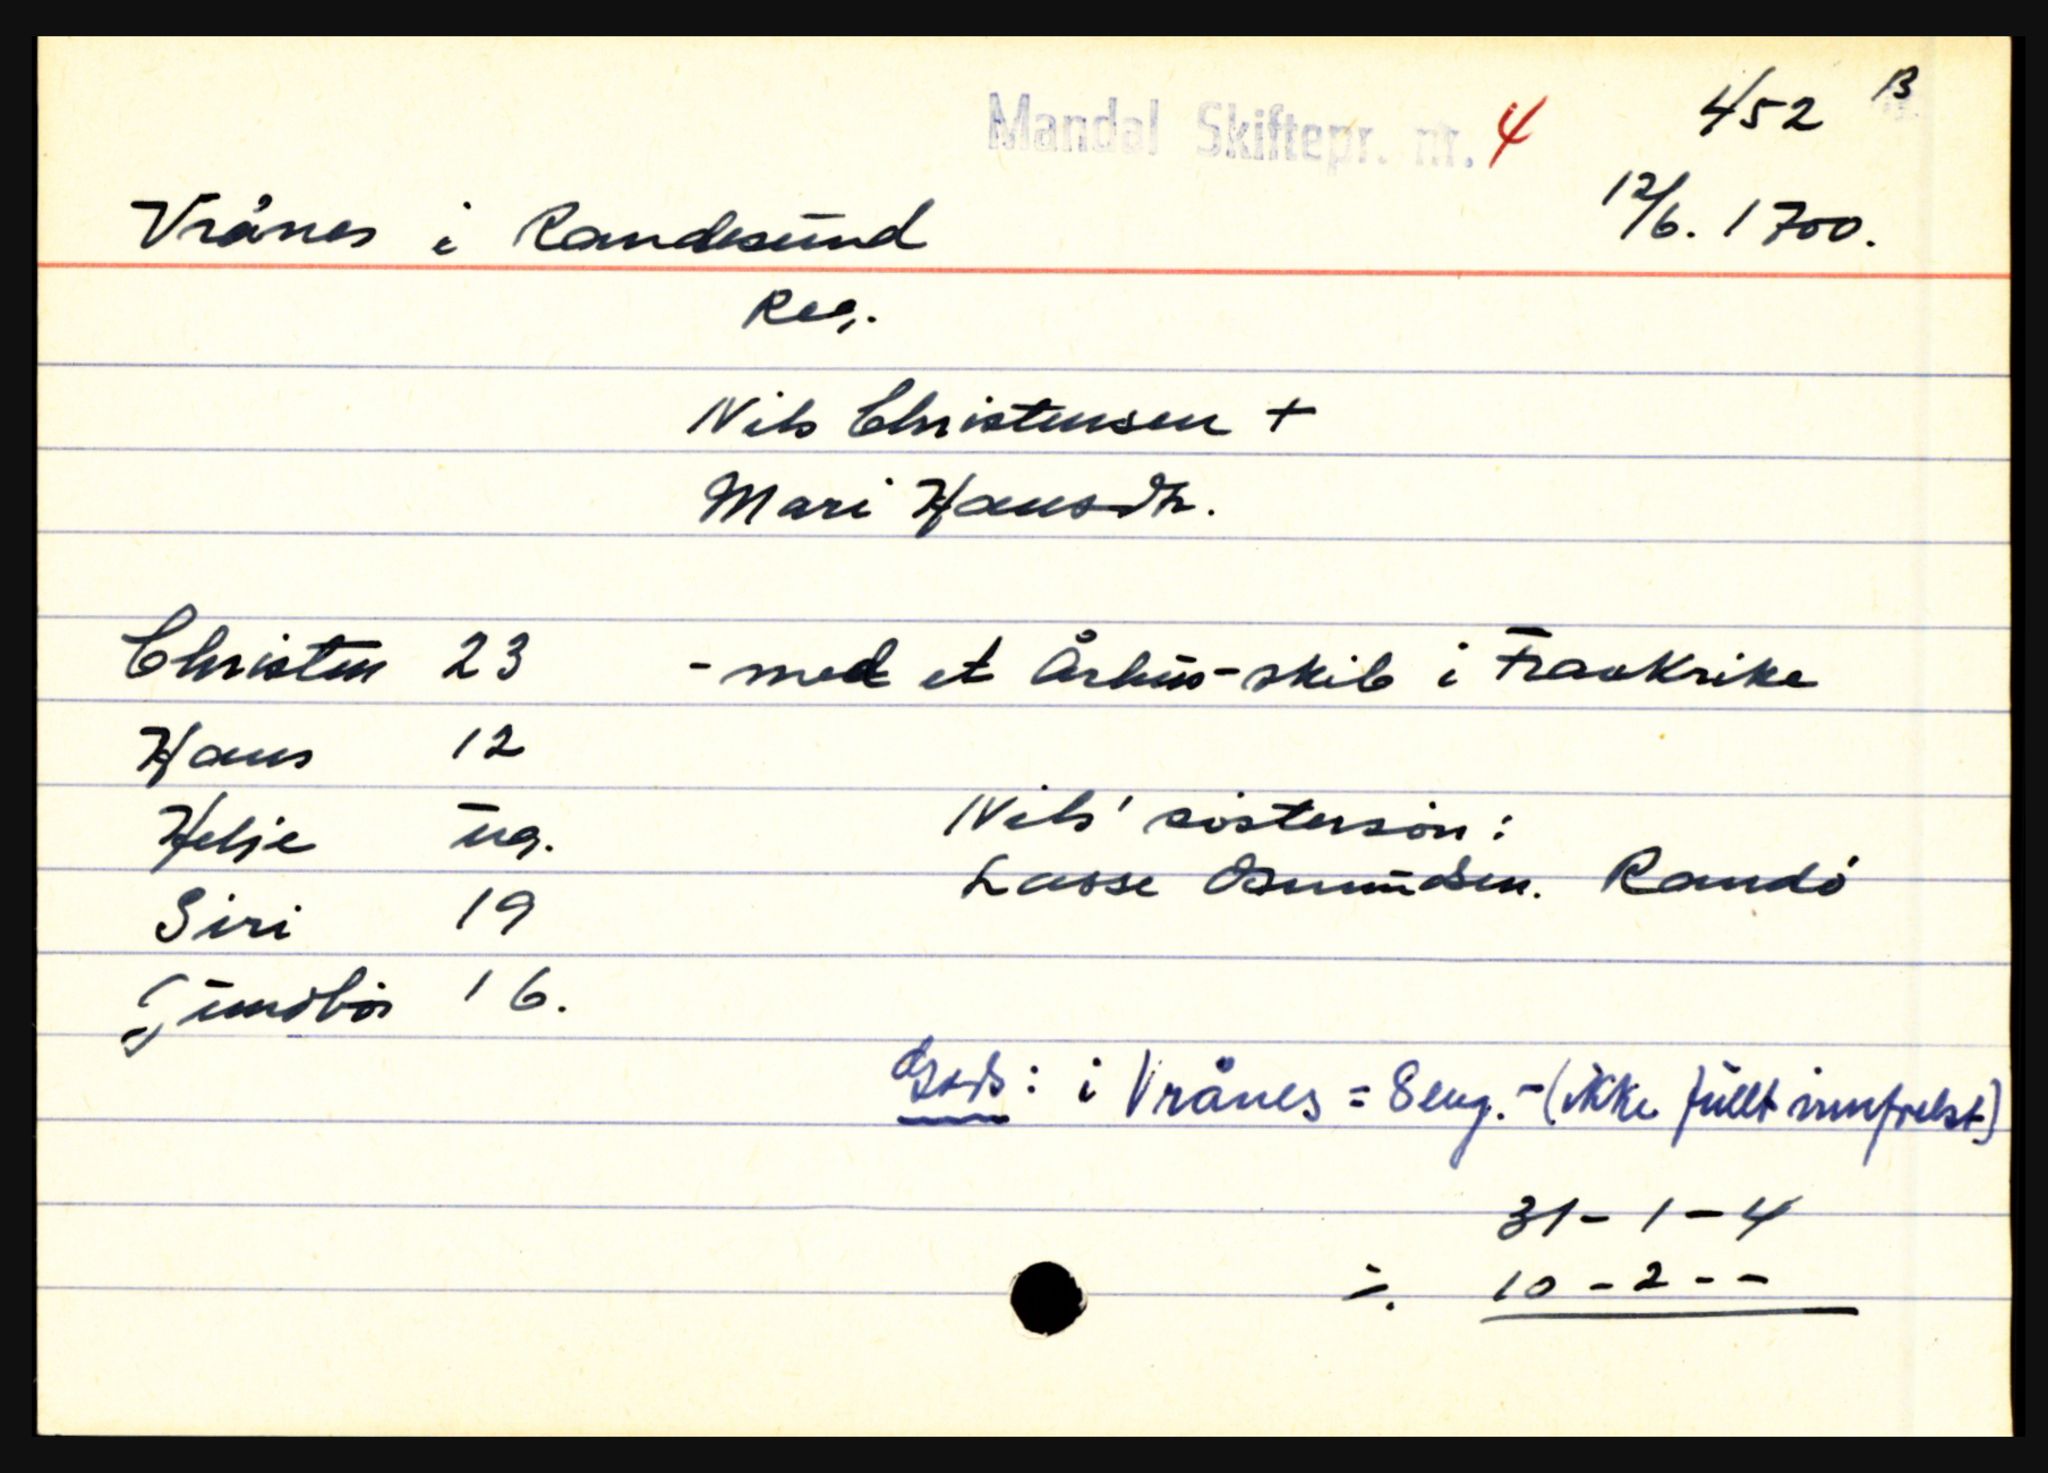 Mandal Skiftepr. nr. 4 452 B
Vrånes i Randesund 12/6. 1700.
Reg.
Nils Christensen +
Mari Hansdtr.
Christen 23 - med et Århus-skib i Frankrike
Hans 12
Helje ug. Nils' søstersøn:
Lasse Osmundsen. Randø
Siri 19
Gundbør 16.
Gods: i Vrånes = 8 eng. - (ikke fullt innfrelst)
31 - 1 - 4
÷. 10 - 2 - -